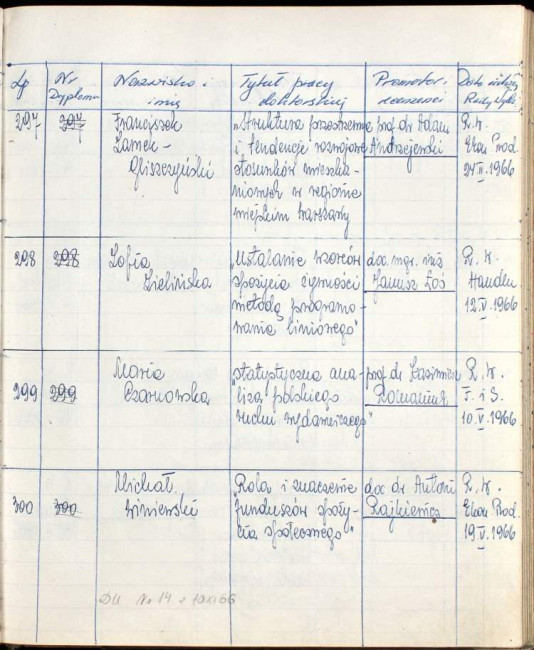 Lp
Nr
Dyplomu
Nazwisko i
imię
Tytuł pracy
doktorskiej
Promotor.
recenzenci
Rady Wydz.
297
297
Franciszek
Zamek-
Gliszczyński
„Struktura przestrzenna
i tendencje rozwojowe
stosunków mieszka-
niowych w regionie
miejskim Warszawy
prof. dr Adam
Andrzejewski
R. W.
Ekon Prod.
24 II. 1966
298
298
Zofia
Zielińska
„Ustalanie wzorców
spożycia żywności
metodą programo-
wania liniowego"
doc. mgr. inż
Janusz Łoś
R. W.
Handlu
12 V. 1966
299
299
Maria
Czarnowska
„statystyczna ana-
liza polskiego
ruchu wydawniczego"
prof dr Kazimierz
Romaniuk
R. W.
F. i S.
10. V. 1966
300
300
Michał
Winiewski
„Rola i znaczenie
funduszów spoży-
cia społecznego"
doc dr Antoni
Rajkiewicz
R. W.
Ekon Prod.
19 V. 1966
Nr 14 z